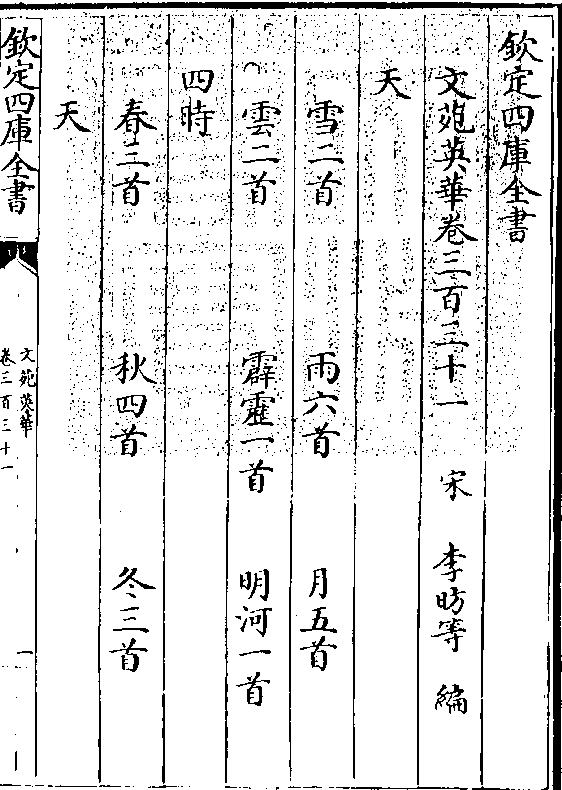 欽定四庫全書
文苑英華卷三百三十一 宋 李昉等 編
天
雪二首 雨六首 月五首
雲二首 霹靂一首 明河一首
四時
春三首 秋四首 冬三首
天
欽定四庫全書
文苑英華
卷三百三十一
一